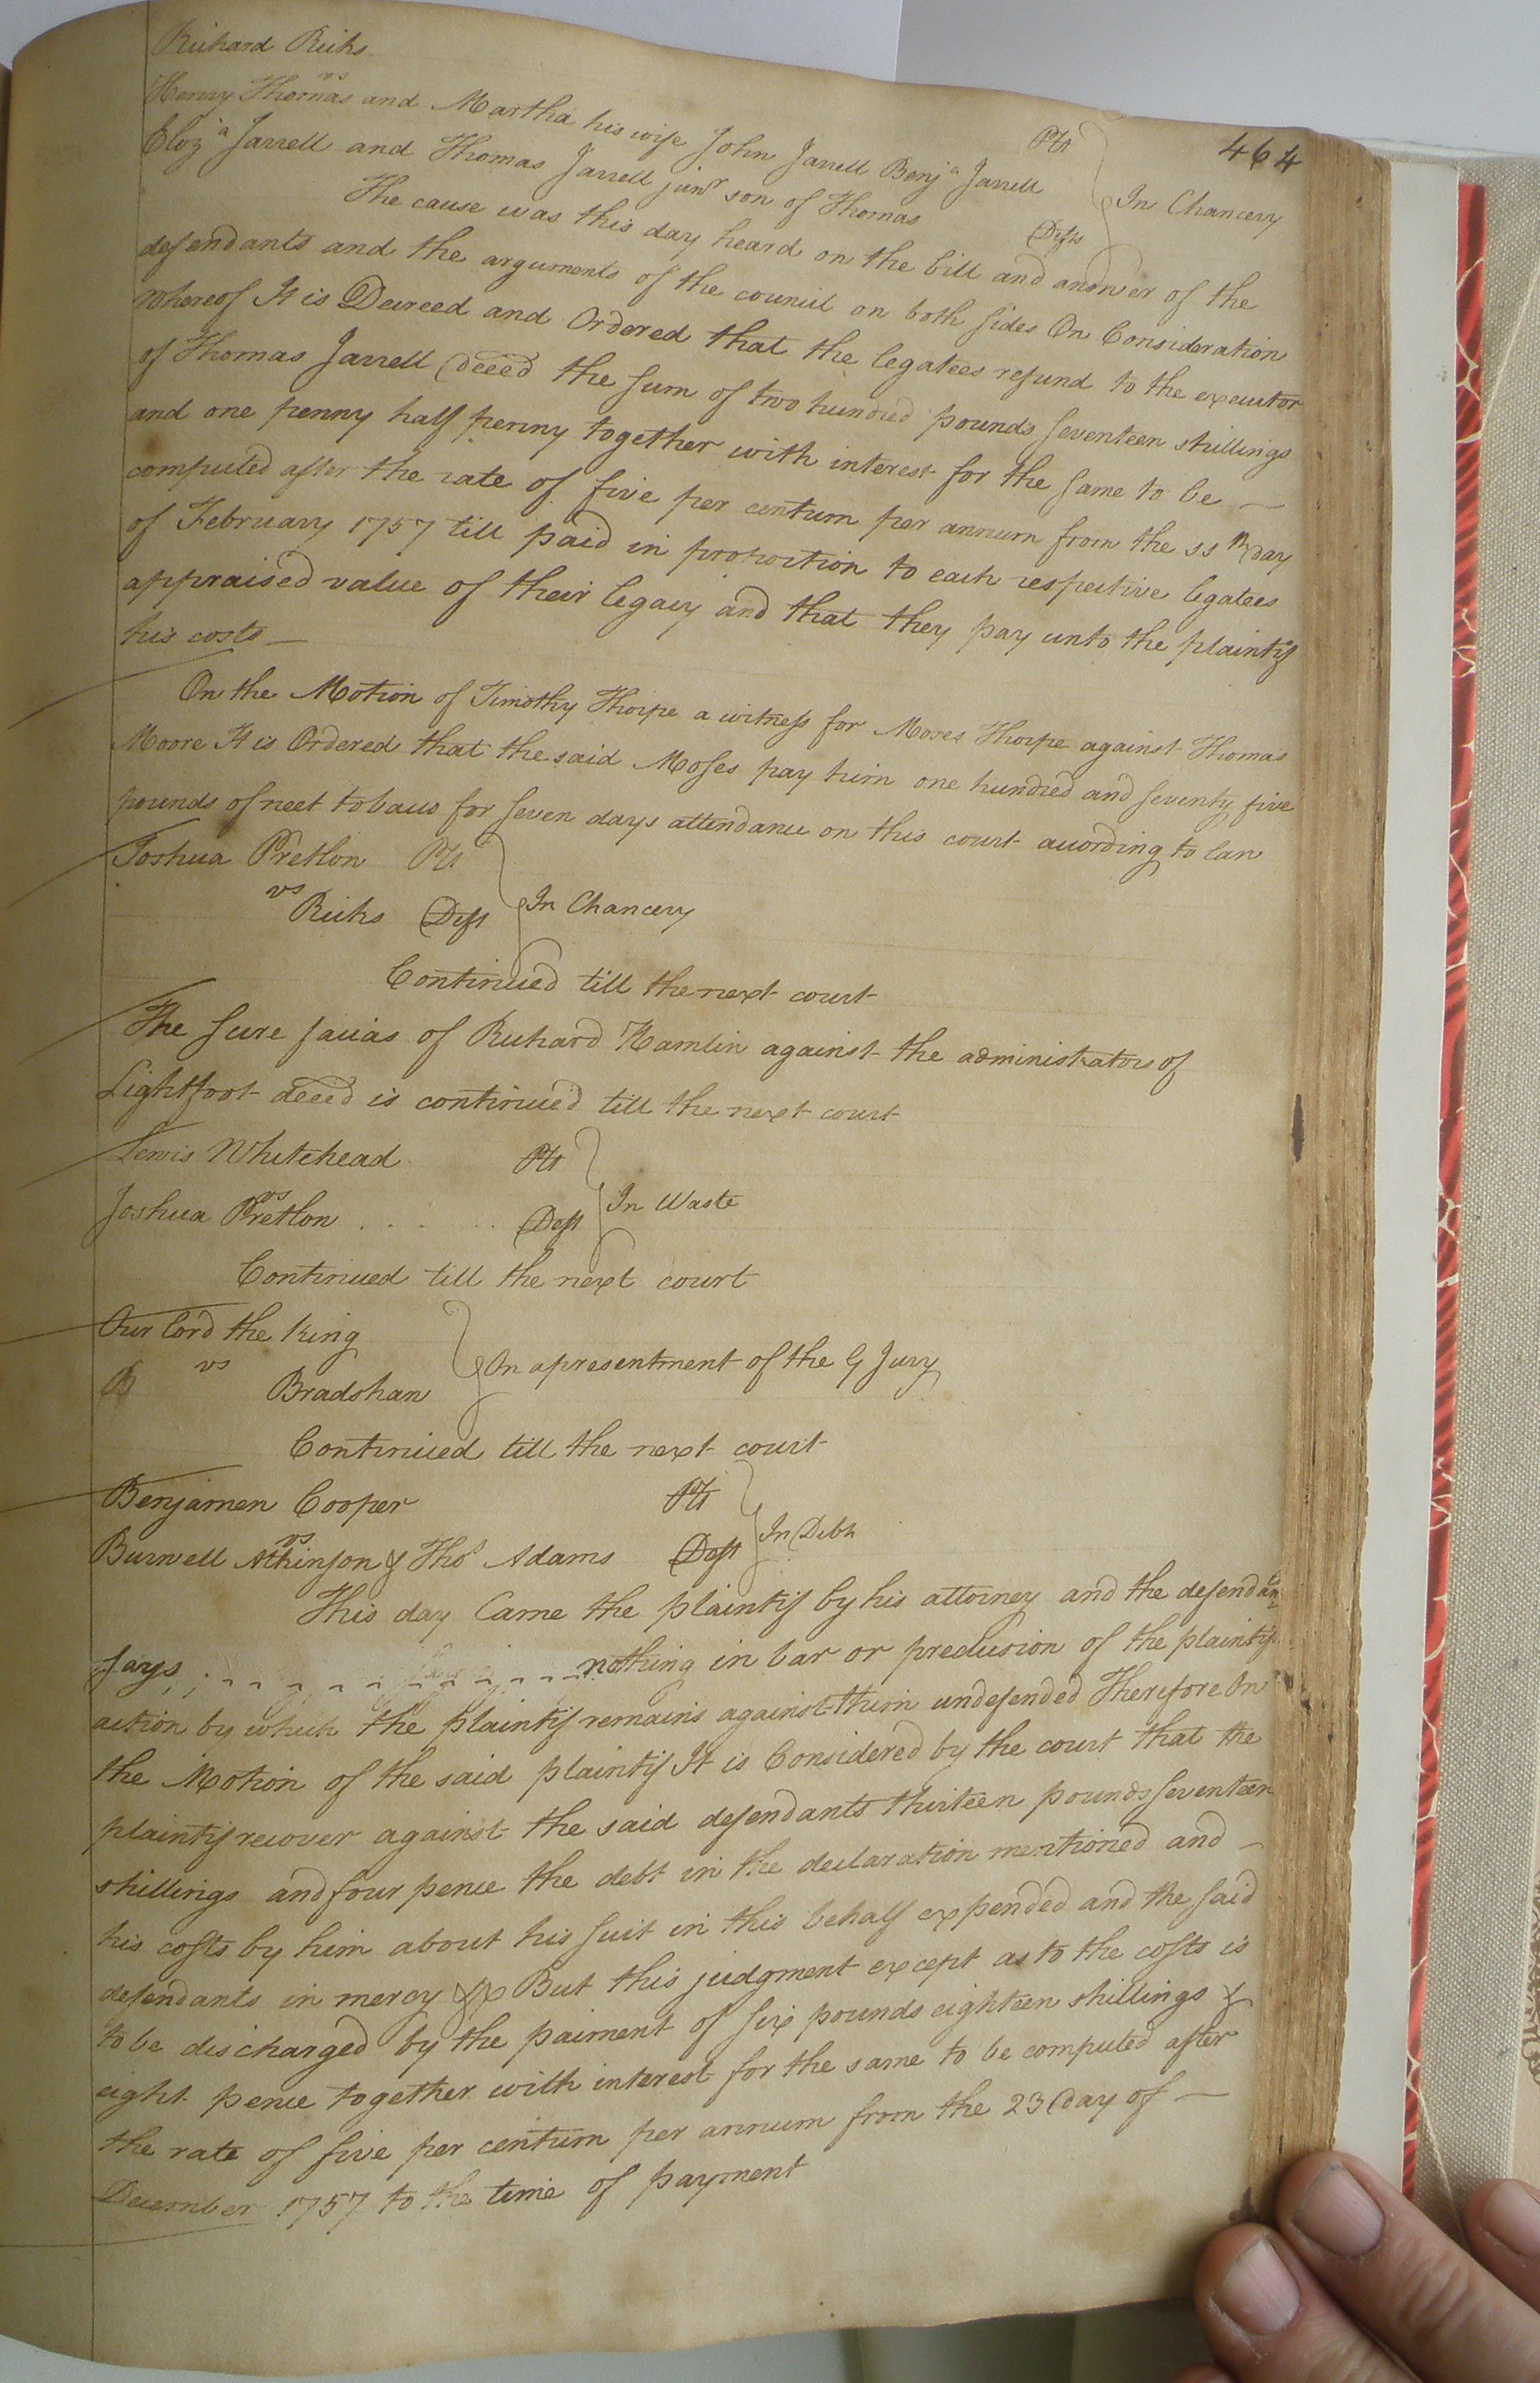 464
Richard Ricks Plt
vs
Henry Thomas and Martha his wife John Jarrell Benja Jarrell In Chancery
Eliza Jarrell and Thomas Jarrell junr son of Thomas Defts
The cause was this day heard on the bill and answer of the
defendants and the arguments of the council on both sides On Consideration
Whereof It is Decreed and Ordered that the legatees refund to the executor
of Thomas Jarrell deced the sum of two hundred pounds seventeen shillings
and one penny half penny together with interest for the same to be —
computed after the rate of five per centum per annum from the th day
of February 1757 till paid in proportion to each respective legatees
appraised value of their legacy and that they pay unto the plaintif
his costs —
On the Motion of Timothy Thorpe a witness for Moses Thorpe against Thomas
Moore It is Ordered that the said Moses pay him one hundred and seventy five
pounds of neet tobacco for seven days attendance on this court according to law
Joshua Pretlon Plt
vs In Chancery
Ricks Deft
Continued till the next court
The scire facias of Richard Hamlin against the administrators of
Lightfoot deced is continued till the next court
Lewis Whitehead Plt
vs In Waste
Joshua Pretlon . . . . Deft
Continued till the next court
Our lord the King
vs On a presentment of the G Jury
B Bradshaw
Continued till the next court
Benjamen Cooper Plt
vs In Debt
Burwell Atkinson & Thos Adams Deft
This day Came the plaintif by his attorney and the defendants
says nothing in bar or preclusion of the plaintifs
action by which the plaintif remains against them undefended Therefore On
the Motion of the said plaintif It is Considered by the court that the
plaintif recover against the said defendants thirteen pounds seventeen
shillings and four pence the debt in the declaration mentioned and —
his costs by him about his suit in this behalf expended and the said
defendants in mercy &c But this judgment except as to the costs is
to be discharged by the paiment of six pounds eighteen shillings &
eight pence together with interest for the same to be computed after
the rate of five per centum per annum from the 23 day of —
December 1757 to the time of payment